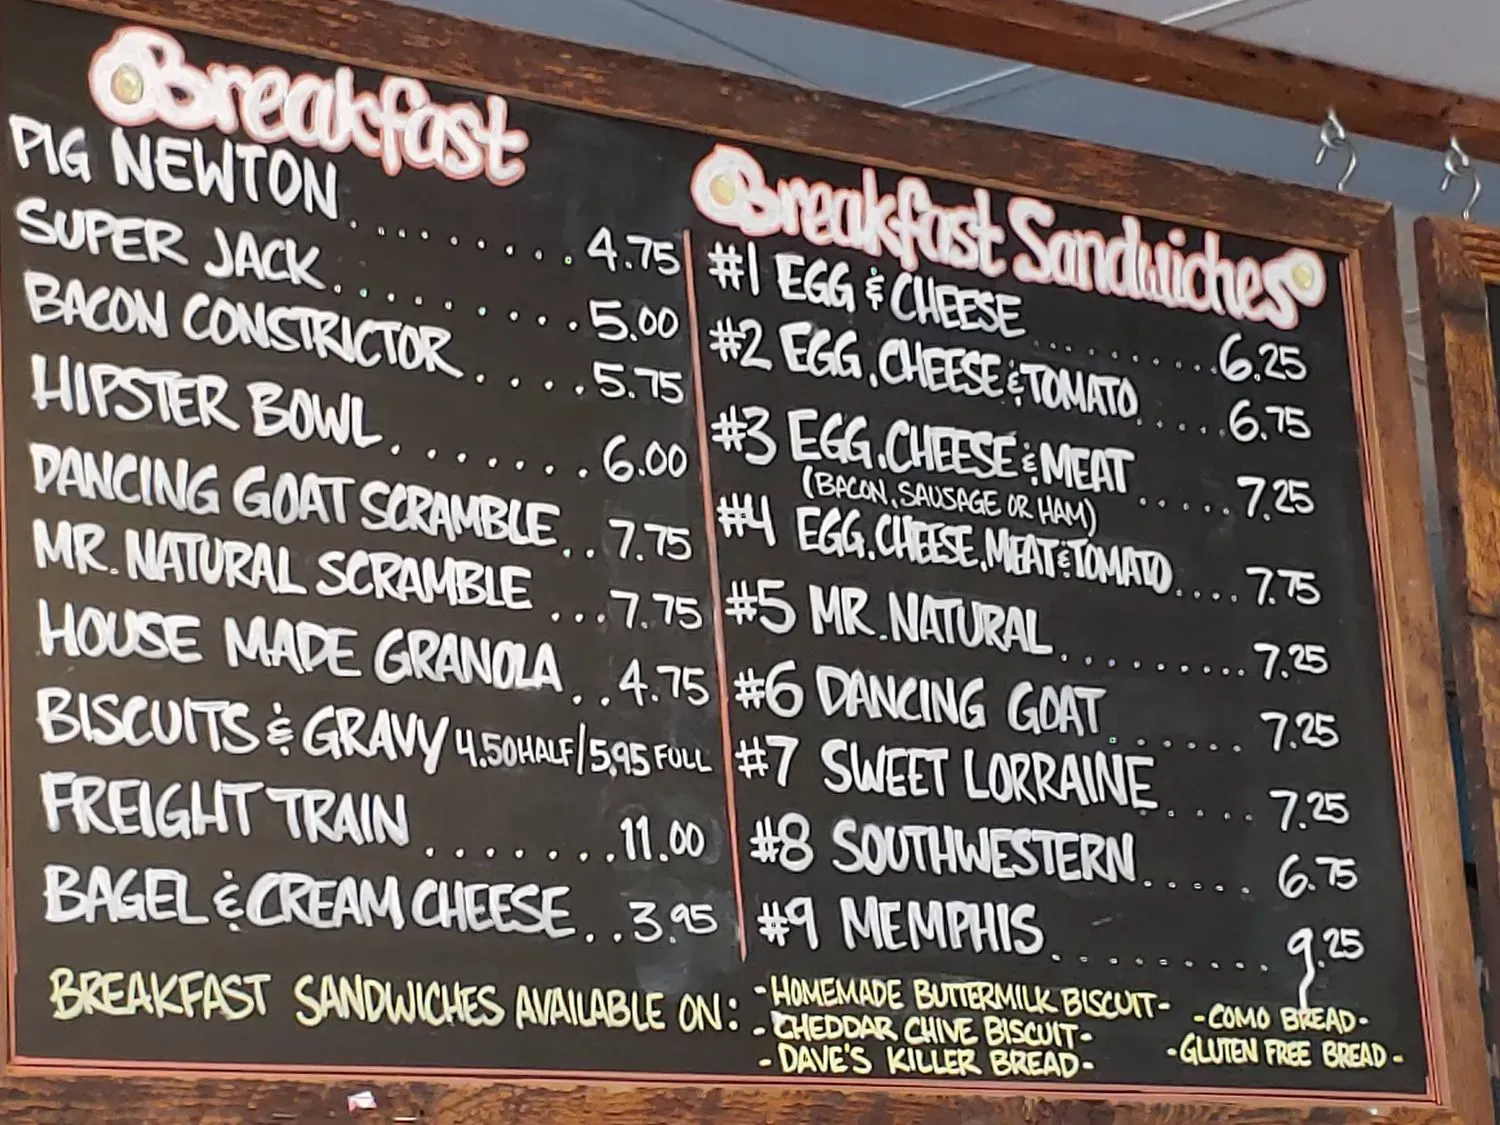 Breakfast
PIG NEWTON ......... 4.75
SUPER JACK ......... 5.00
BACON CONSTRICTOR .... 5.75
HIPSTER BOWL ........ 6.00
DANCING GOAT SCRAMBLE .. 7.75
MR. NATURAL SCRAMBLE ... 7.75
HOUSE MADE GRANOLA .. 4.75
BISCUITS & GRAVY 4.50 HALF/5.95 FULL
FREIGHT TRAIN ....... 11.00
BAGEL & CREAM CHEESE .. 3.95
Breakfast Sandwiches
#1 EGG & CHEESE ......... 6.25
#2 EGG, CHEESE & TOMATO ..... 6.75
#3 EGG, CHEESE & MEAT ...... 7.25
(BACON, SAUSAGE OR HAM)
#4 EGG, CHEESE, MEAT & TOMATO .... 7.75
#5 MR. NATURAL ......... 7.25
#6 DANCING GOAT ...... 7.25
#7 SWEET LORRAINE ..... 7.25
#8 SOUTHWESTERN ..... 6.75
#9 MEMPHIS ......... 9.25
BREAKFAST SANDWICHES AVAILABLE ON:
-HOMEMADE BUTTERMILK BISCUIT-
-CHEDDAR CHIVE BISCUIT-
-DAVE'S KILLER BREAD-
-COMO BREAD-
-GLUTEN FREE BREAD-